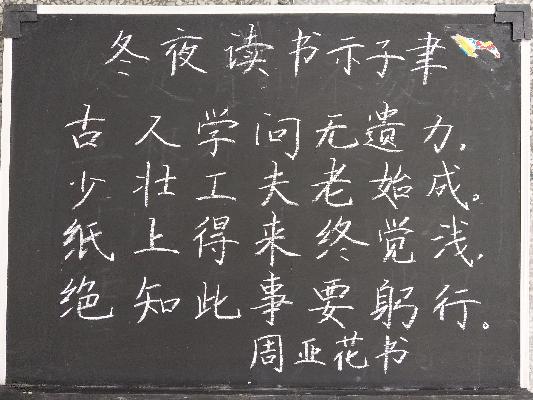 冬夜读书示子聿
古人学问无遗力,
少壮工夫老始成。
纸上得来终觉浅,
绝知此事要躬行。
周亚花书